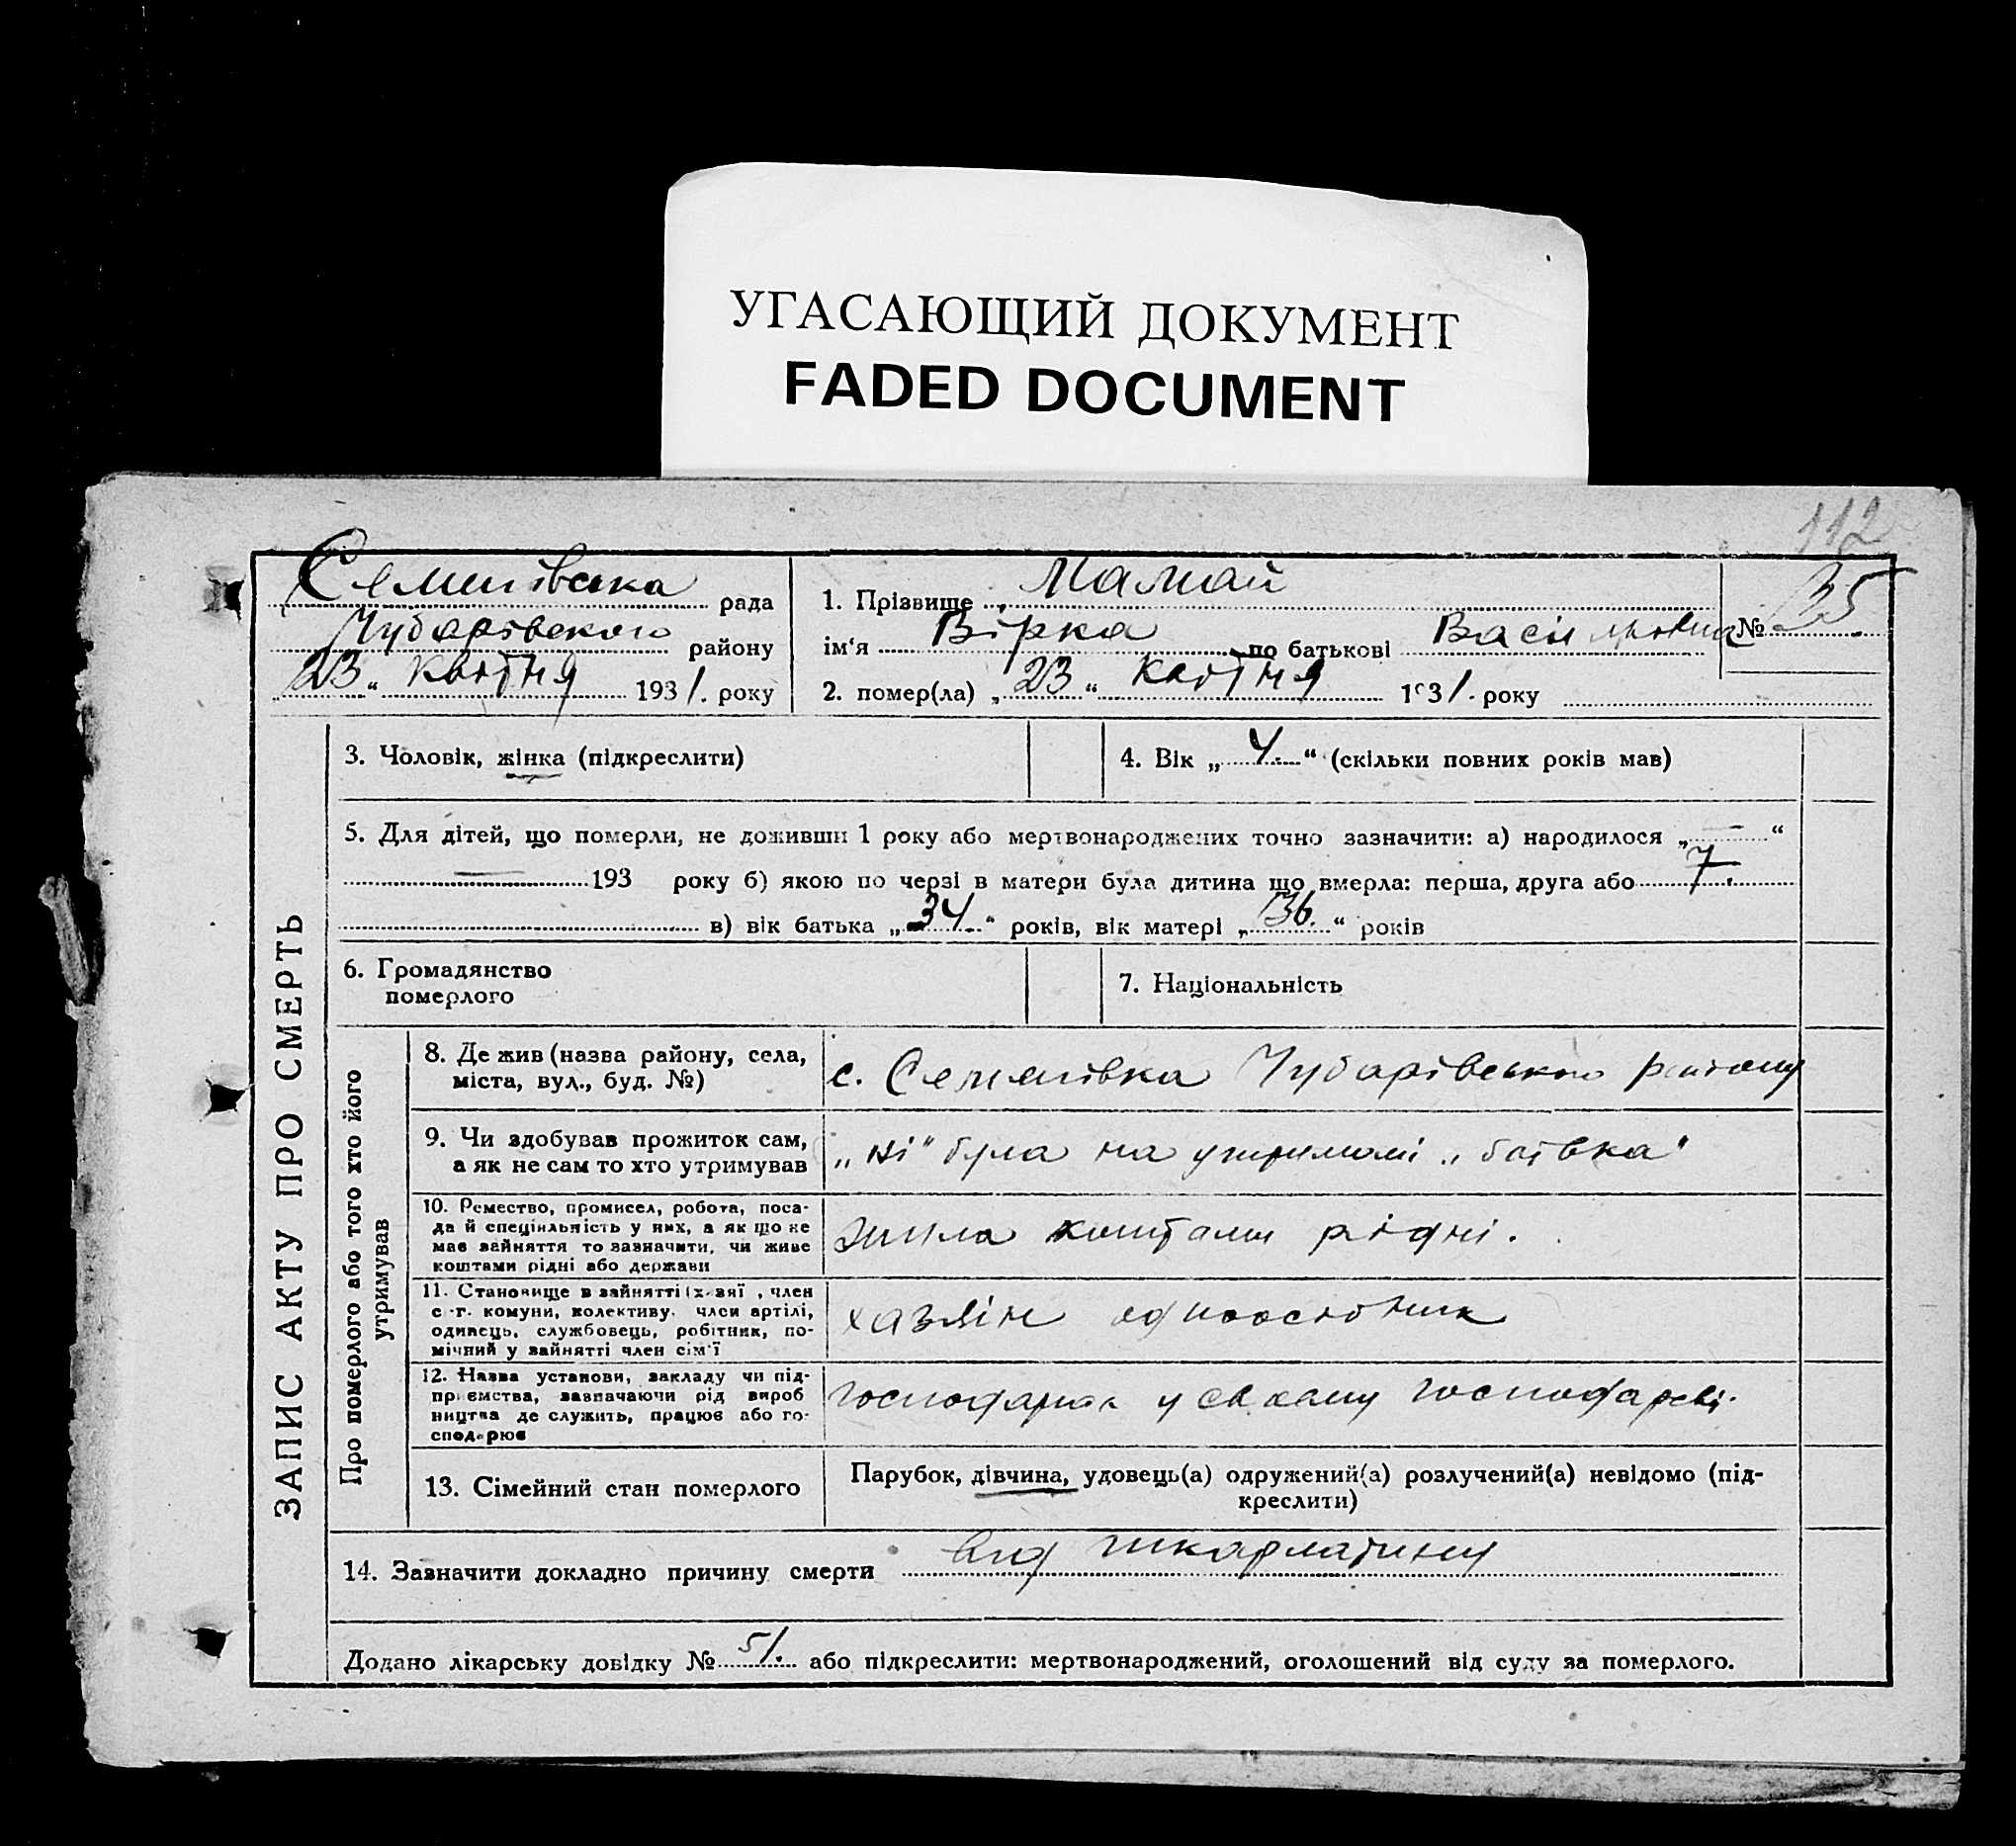 УГАСАЮЩИЙ ДОКУМЕНТ
FADED DOCUMENT
112
Семенівська рада
Чубарівського району
23 „ квітня 1931. року
1. Прізвище Мамай
ім‘я Вірка по батькові Василовна
№ 35
2. помер(ла) „ 23 “ квітня 1931. року
ЗАПИС АКТУ ПРО СМЕРТЬ
3. Чоловік, жінка (підкреслити)
4. Вік „ 4. “ (скільки повних років мав)
5. Для дітей, що померли, не доживши 1 року або мертвонароджених точно зазначити: а) народилося „ — “
— 193 року б) якою по черзі в матери була дитина що вмерла: перша, друга або 7.
в) вік батька „ 34 “ років, вік матері „ 36. “ років
6. Громадянство
померлого
7. Національність
Про померлого або того хто його
утримував
8. Де жив (назва району, села,
міста, вул., буд. №)
с. Семенівка Чубарівського району
9. Чи здобував прожиток сам,
а як не сам то хто утримував
„ ні “ була на утримані „ батька “
10. Ремество, промисел, робота, поса-
да й спеціяльність у них, а як що не
має зайняття то зазначити, чи живе
коштами рідні або держави
жила коштами рідні.
11. Становище в зайнятті (х-зяї , член
с.-г. комуни, колективу, член артілі,
одинець, службовець, робітник, по-
мічний у зайнятті член сім‘ї
хазяін одноосібник
12. Назва установи, закладу чи під-
приємства, зазначаючи рід вироб
ництва де служить, працює або го-
сподарює
господарює у своєму господарсві.
13. Сімейний стан померлого
Парубок, дівчина, удовець(а) одружений(а) розлучений(а) невідомо (під-
креслити)
14. Зазначити докладно причину смерти від шкарлатини
Додано лікарську довідку № 51. або підкреслити: мертвонароджений, оголошений від суду за померлого.